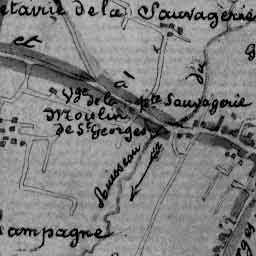 etairie de la Sauvagerie
et
à
du
Vge de la pte Sauvagerie
Moulin
de St Georges
Ruisseau
de
ampagne